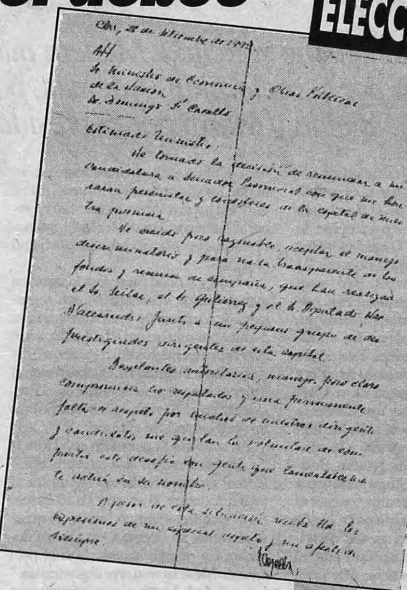 ELECC
Cba, 28 de setiembre de
Al
Sr. Ministro de Economía y Obras Públicas
de la Nación
Dr. Domingo F. Cavallo
Estimado Ministro:
He tomado la decisión de renunciar a mi
candidatura a Senador Provincial con que me han
peronistas y de la capital de nues
tra provincia.
He creído poco razonable, aceptar el manejo
discriminatorio y para nada transparente de los
fondos y recursos de campaña, que han realizado
el Sr. el Sr. Gutierrez y el Sr. Diputado
D'Alessandro junto a un pequeno grupo de des
prestigiados dirigentes de esta capital.
autoritarios, manejos poco claros
compromisos no respetados y una permanente
falta de respeto por muchos de nuestros dirigentes
y candidatos me quitan la voluntad de com
partir este desafío con gente que lamentablemen
te actúa en su nombre.
A pesar de esta situación reciba Ud. las
expresiones de mi respeto y mi afecto de
siempre.